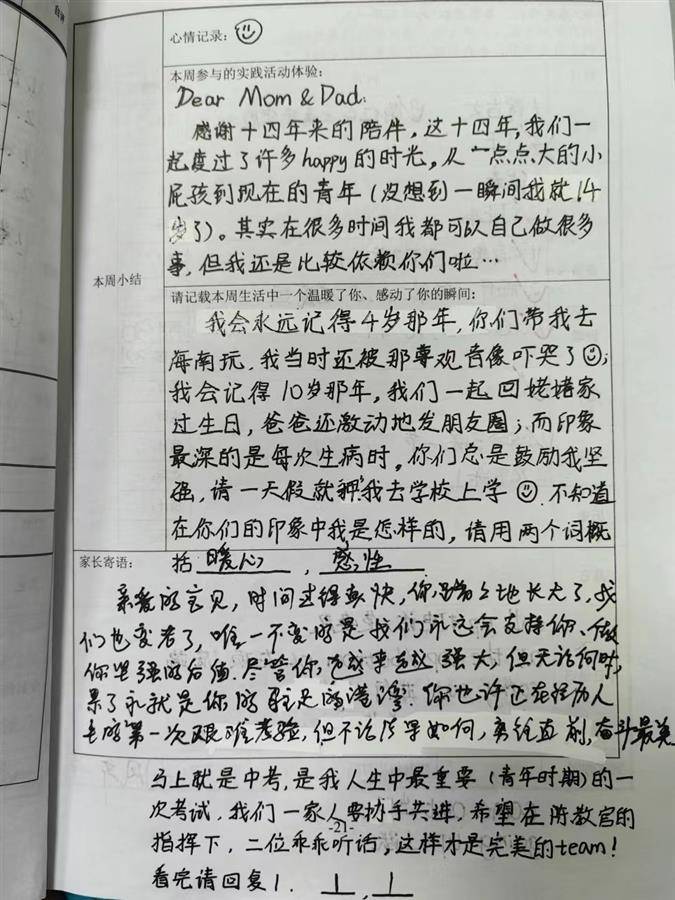 自评
心情记录：
本周参与的实践活动体验：
Dear Mom & Dad.
感谢十四年来的陪伴，这十四年，我们一
起度过了许多happy的时光，从一点点大的小
屁孩到现在的青年（没想到一瞬间我就14
岁了）。其实在很多时间我都可以自己做很多
事，但我还是比较依赖你们啦…
本周小结
请记载本周生活中一个温暖了你、感动了你的瞬间：
我会永远记得4岁那年，你们带我去
海南玩，我当时还被那尊观音像吓哭了；
我会记得10岁那年，我们一起回姥姥家
过生日，爸爸还激动地发朋友圈；而印象
最深的是每次生病时，你们总是鼓励我坚
强，请一天假就 我去学校上学 不知道
在你们的印象中我是怎样的，请用两个词概
括 暖心，感性
家长寄语：
亲爱的宝贝，时间过得真快，你 地长大了，我
们也变老了，唯一不变的是我们永远会支持你、做
你坚强的后盾.尽管你越来越强大，但无论何时，
累了永就是你的驻足的港湾.你也许正在经历人
生的第一次艰难考验，但不论结果如何，勇往直前，奋斗最美
马上就是中考，是我人生中最重要（青年时期）的一
次考试，我们一家人要协手共进，希望在陈教官的
指挥下，二位乖乖听话，这样才是完美的team！
-21-
看完请回复1. 1，1